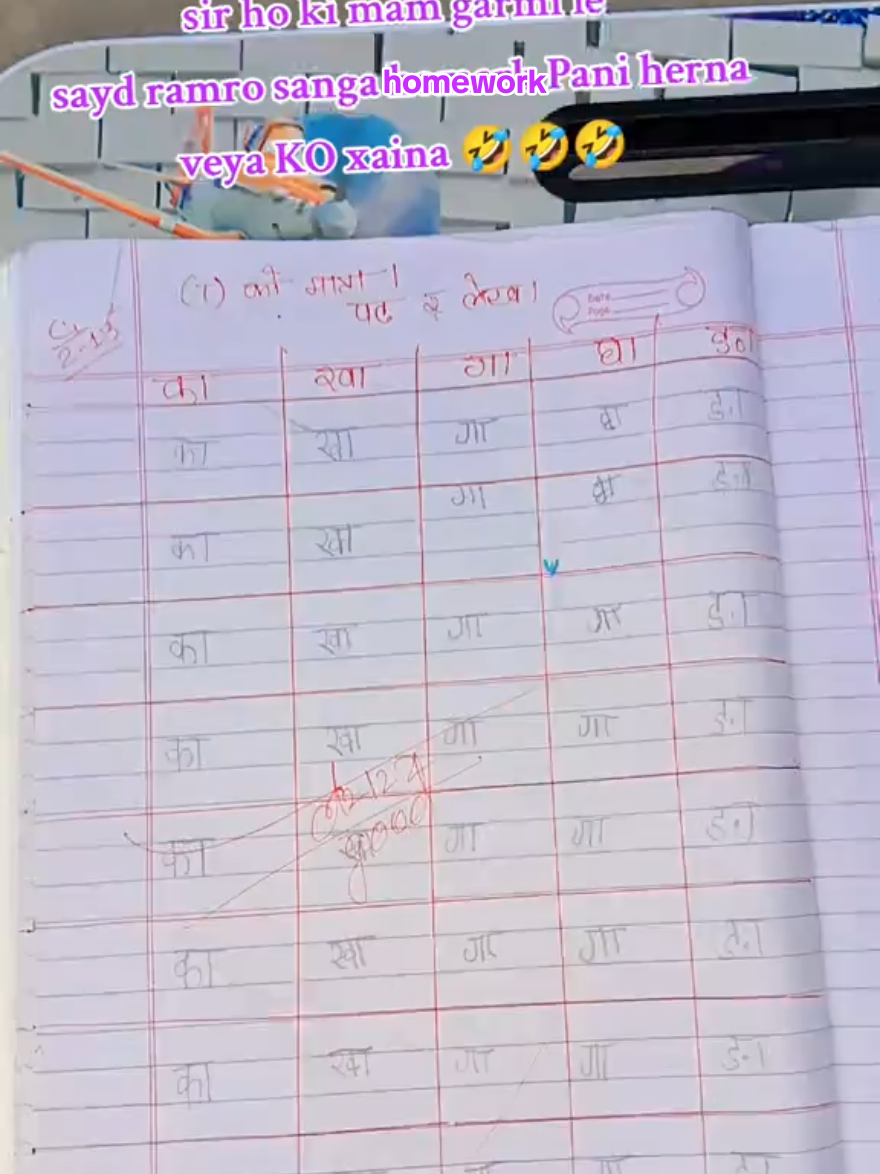 sir ho ki mam garmi le
sayd ramro sanga homework Pani herna
veya KO xaina 🤣🤣🤣
(ा) को मात्रा ।
पढ र लेख ।
Date
Page
का खा गा घा ङा
का खा गा घा ङा
का खा गा घा ङा
का खा गा गा ङा
का खा गा गा ङा
का खा गा गा ङा
good
का खा गा गा ङा
का खा गा गा ङा